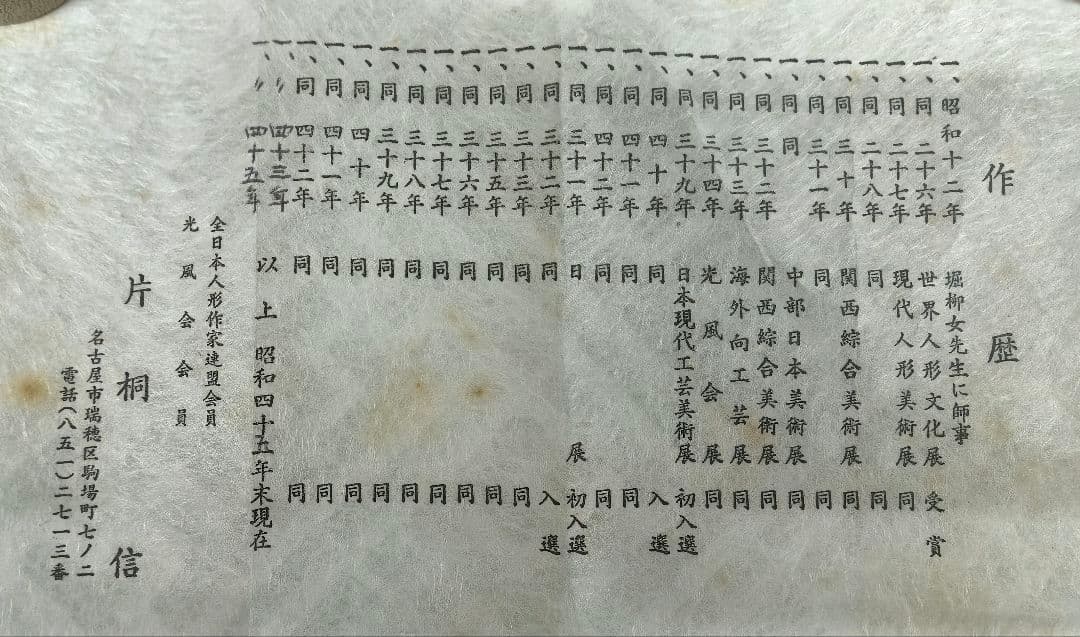 作歴
一、昭和十二年 堀柳女先生に師事
一、同 二十六年 世界人形文化展 受賞
一、同 二十七年 現代人形美術展 同
一、同 二十八年 同 同
一、同 三十年 関西綜合美術展 同
一、同 三十一年 同 同
一、同 同 中部日本美術展 同
一、同 三十二年 関西綜合美術展 同
一、同 三十三年 海外向工芸展 同
一、同 三十四年 光風会展 同
一、同 三十九年 日本現代工芸美術展 初入選
一、同 四十年 同 入選
一、同 四十一年 同 同
一、同 四十二年 同 同
一、同 三十一年 日展 初入選
一、同 三十二年 同 入選
一、同 三十三年 同 同
一、同 三十五年 同 同
一、同 三十六年 同 同
一、同 三十八年 同 同
一、同 三十九年 同 同
一、同 四十年 同 同
一、同 四十一年 同 同
一、同 四十二年 同 同
一、〃 四十三年
一、〃 四十五年
以上 昭和四十五年末現在
全日本人形作家連盟会員
光風会会員
片桐信
名古屋市瑞穂区駒場町七ノ二
電話(八五一)二七一三番